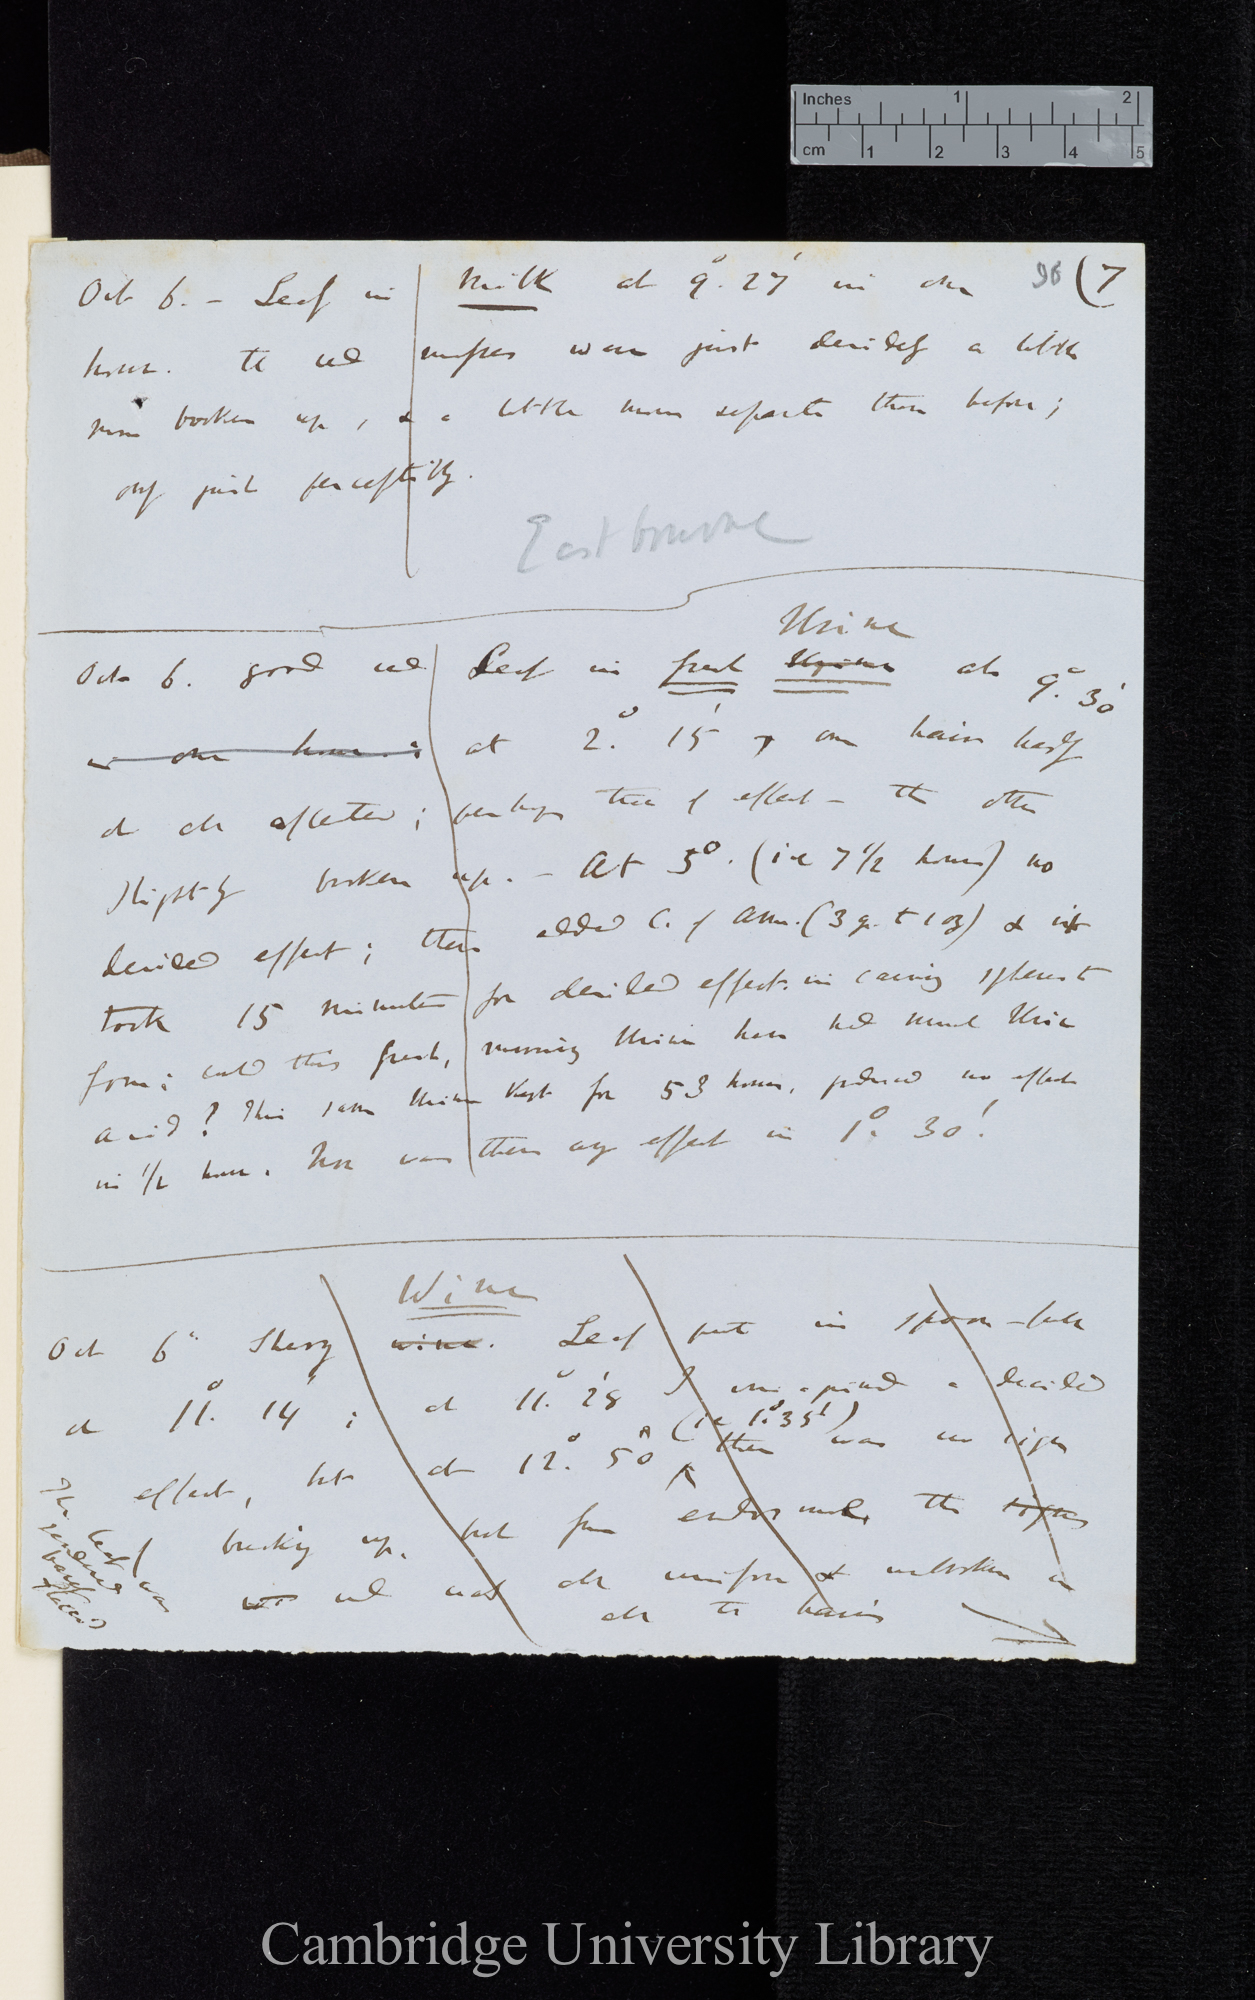 Inches 1 2
cm 1 2 3 4 5
96 (7
Oct 6. – Leaf in Milk at 9° 27' in one
hour. the red masses were just decidedly a little
more broken up, & a little more separate than before;
only just perceptibly.
Eastbourne
Urine
Oct 6. good red Leaf in fresh Urine at 9°. 30'
in one hour:
at 2°. 15' one hair hardly
at all affected; perhaps trace of effect – the other
slightly broken up. – At 5°. (ie 7 1/2 hours) no
decided effect; then added C. of Amm. (3 gr. to 1 oz) &
took 15 minutes for decided effect. in causing
form; could this fresh, morning Urine have had much Uric
acid? This same Urine kept for 53 hours, produced no effect
in 1/2 hour. Nor was there any effect in 1°. 30'.
Wine
Oct 6th Sherry wine. Leaf put in spoon-full
at 11°. 14'; at 11°. 28' I imagined a decided
(ie 1°. 35')
effect, but at 12°. 50' there was no sign
of breaking up, but from the
red all uniform & unbroken in
all the hairs
The leaf was
rendered
flaccid
Cambridge University Library